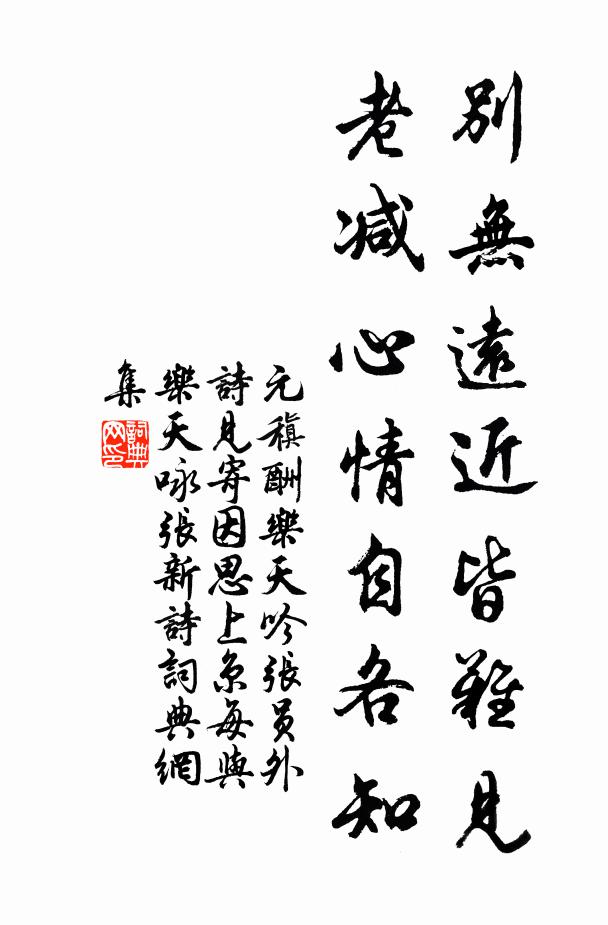 別無遠近皆難見
老減心情自各知
元稹酬樂天吟張員外
詩見寄因思上京每與
樂天咏張新詩詞典網
集
詞典網印